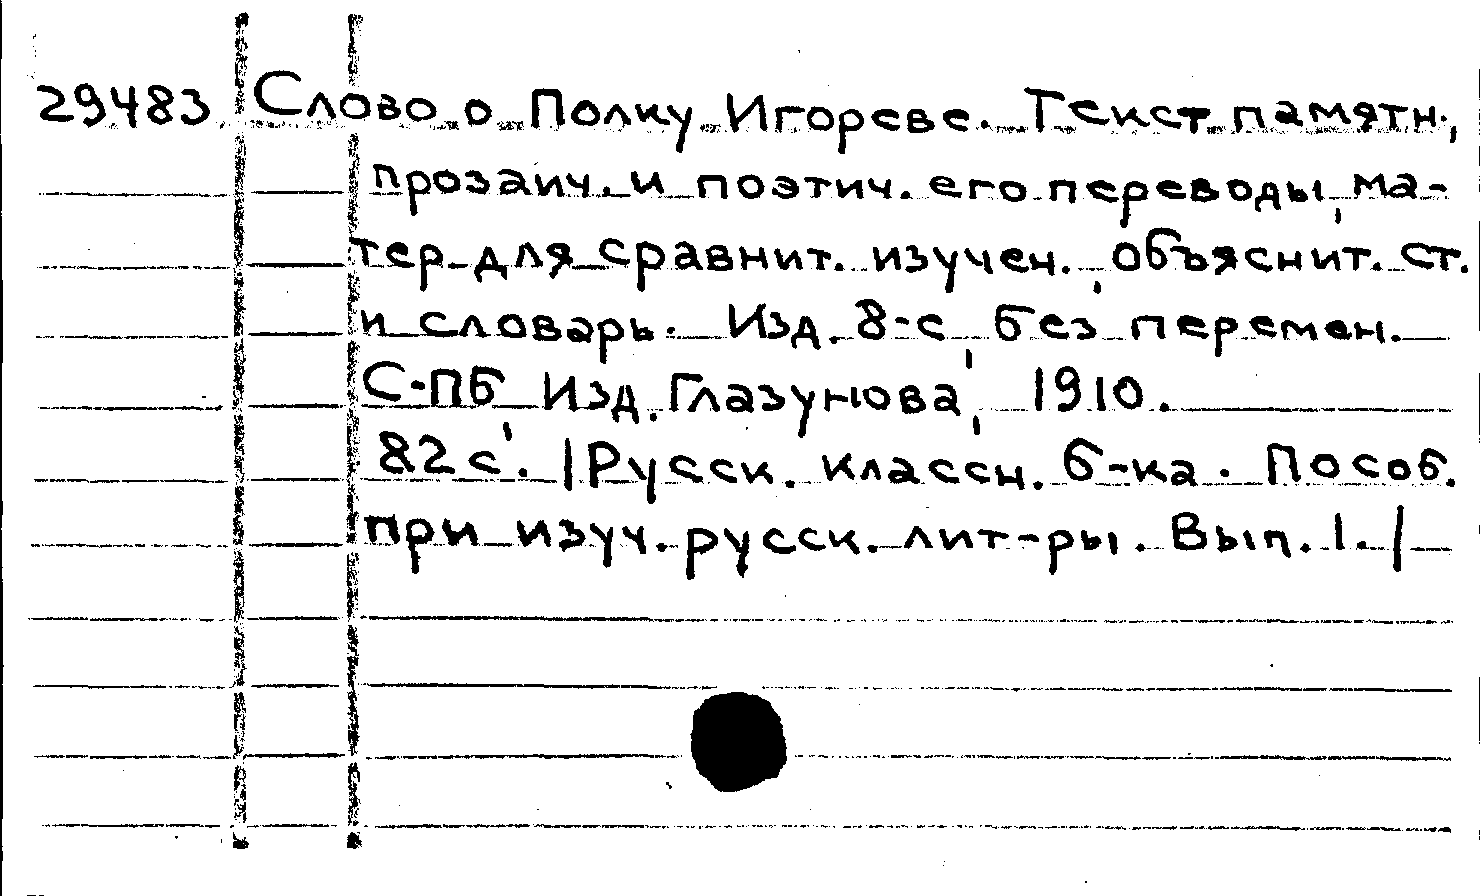 29483 Слово о Полку Игореве. Текст памятн.,
прозаич. и поэтич. его переводы, ма-
тер. для сравнит. изучен., объяснит. ст.
и словарь. Изд. 8-е, без перемен.
С-ПБ, Изд. Глазунова, 1910.
82 с. |Русск. классн. б-ка. Пособ.
при изуч. русск. лит-ры. Вып. 1.|